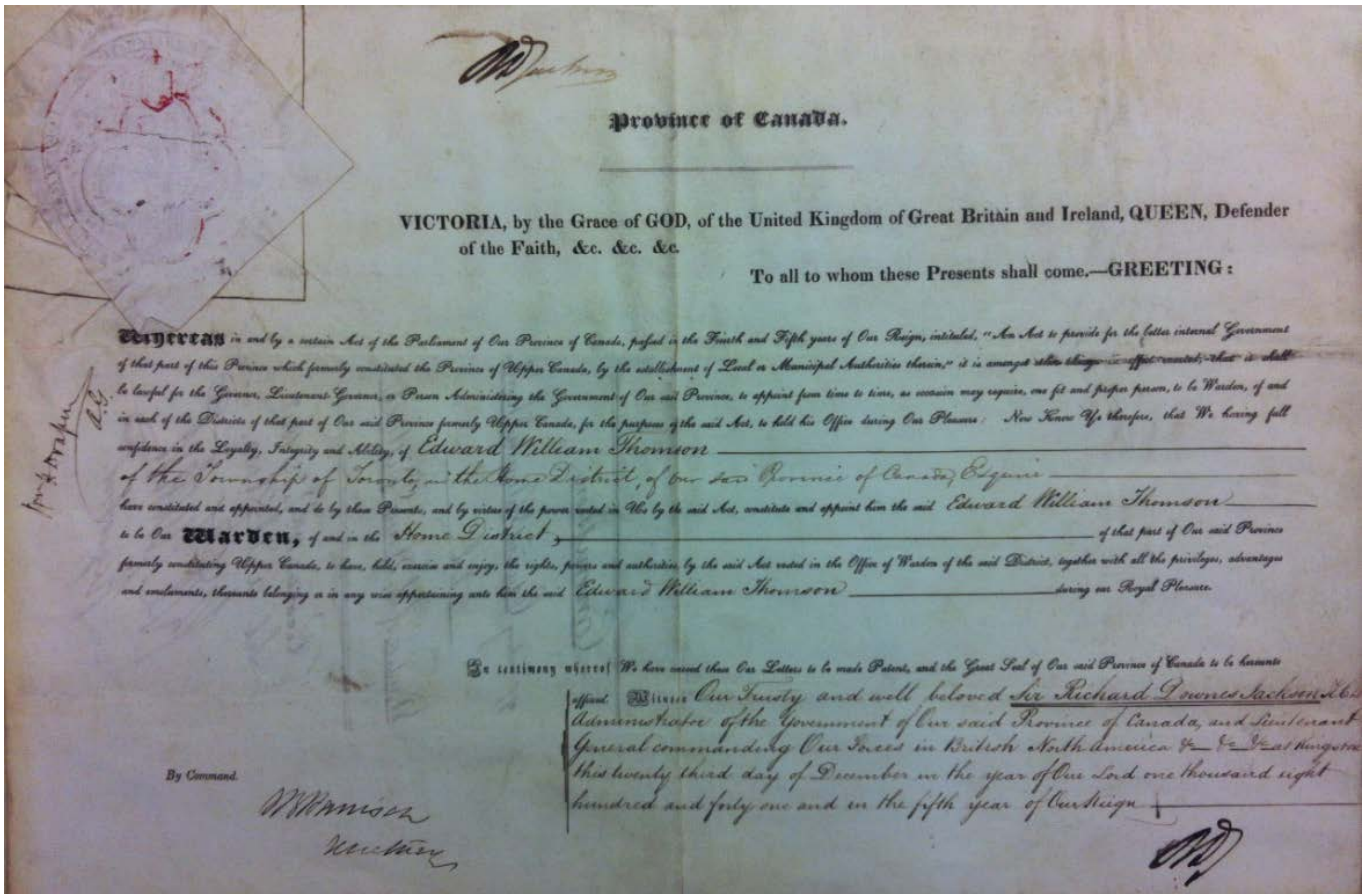 Province of Canada.
VICTORIA, by the Grace of GOD, of the United Kingdom of Great Britain and Ireland, QUEEN, Defender
of the Faith, &c. &c. &c.
To all to whom these Presents shall come.—GREETING:
Whereas in and by a certain Act of the Parliament of Our Province of Canada, passed in the Fourth and Fifth years of Our Reign, intituled, "An Act to provide for the better internal Government
of that part of this Province which formerly constituted the Province of Upper Canada, by the establishment of Local or Municipal Authorities therein," it is amongst other things in effect enacted, that it shall
be lawful for the Governor, Lieutenant Governor, or Person Administering the Government of Our said Province, to appoint from time to time, as occasion may require, one fit and proper person, to be Warden, of and
in each of the Districts of that part of Our said Province formerly Upper Canada, for the purposes of the said Act, to hold his Office during Our Pleasure: Now Know Ye therefore, that We having full
confidence in the Loyalty, Integrity and Ability, of Edward William Thomson
of the Township of Toronto, in the Home District, of our said Province of Canada, Esquire
have constituted and appointed, and do by these Presents, and by virtue of the power vested in Us by the said Act, constitute and appoint him the said Edward William Thomson
to be Our Warden, of and in the Home District, of that part of Our said Province
formerly constituting Upper Canada, to have, hold, exercise and enjoy, the rights, powers and authorities, by the said Act vested in the Office of Warden of the said District, together with all the privileges, advantages
and emoluments, thereunto belonging or in any wise appertaining unto him the said Edward William Thomson during our Royal Pleasure.
In testimony whereof We have caused these Our Letters to be made Patent, and the Great Seal of Our said Province of Canada to be hereunto
affixed Witness Our Trusty and well beloved Sir Richard Downes Jackson K.C.B.
Administrator of the Government of Our said Province of Canada, and Lieutenant
General commanding Our Forces in British North America &c &c &c at Kingston
this twenty third day of December in the year of Our Lord one thousand eight
hundred and forty one and in the fifth year of Our Reign
By Command.